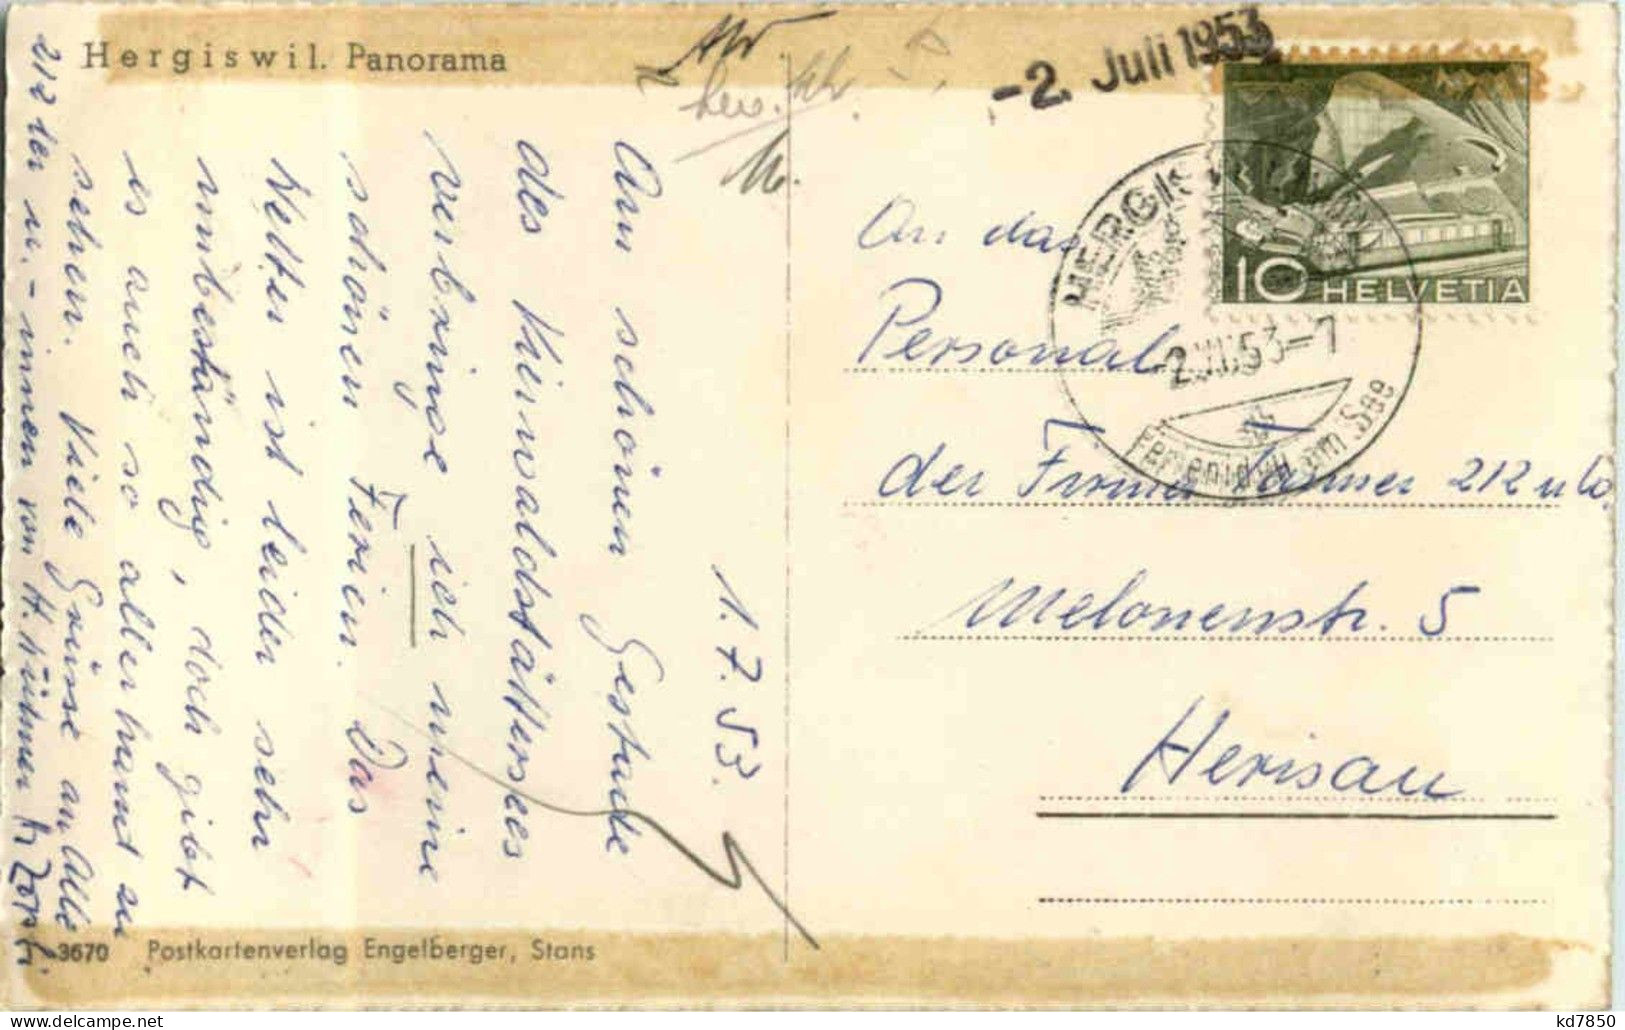 Hergiswil. Panorama
-2. Juli 1953
1.7.53.
Am schönen Gestade
des Vierwaldstättersees
verbringe ich meine
schönen Ferien. Das
Wetter ist leider sehr
unbeständig, doch gibt
es auch so allerhand zu
sehen. Viele Grüsse an Alle
212 ler u. - innen von H.
An das
Personal
der Firma Tanner 212 u Co.
Melonenstr. 5
Herisau
10 HELVETIA
HERGIS
2.VII.53-7
Ferienidyll am See
3670 Postkartenverlag Engelberger, Stans
kd7850